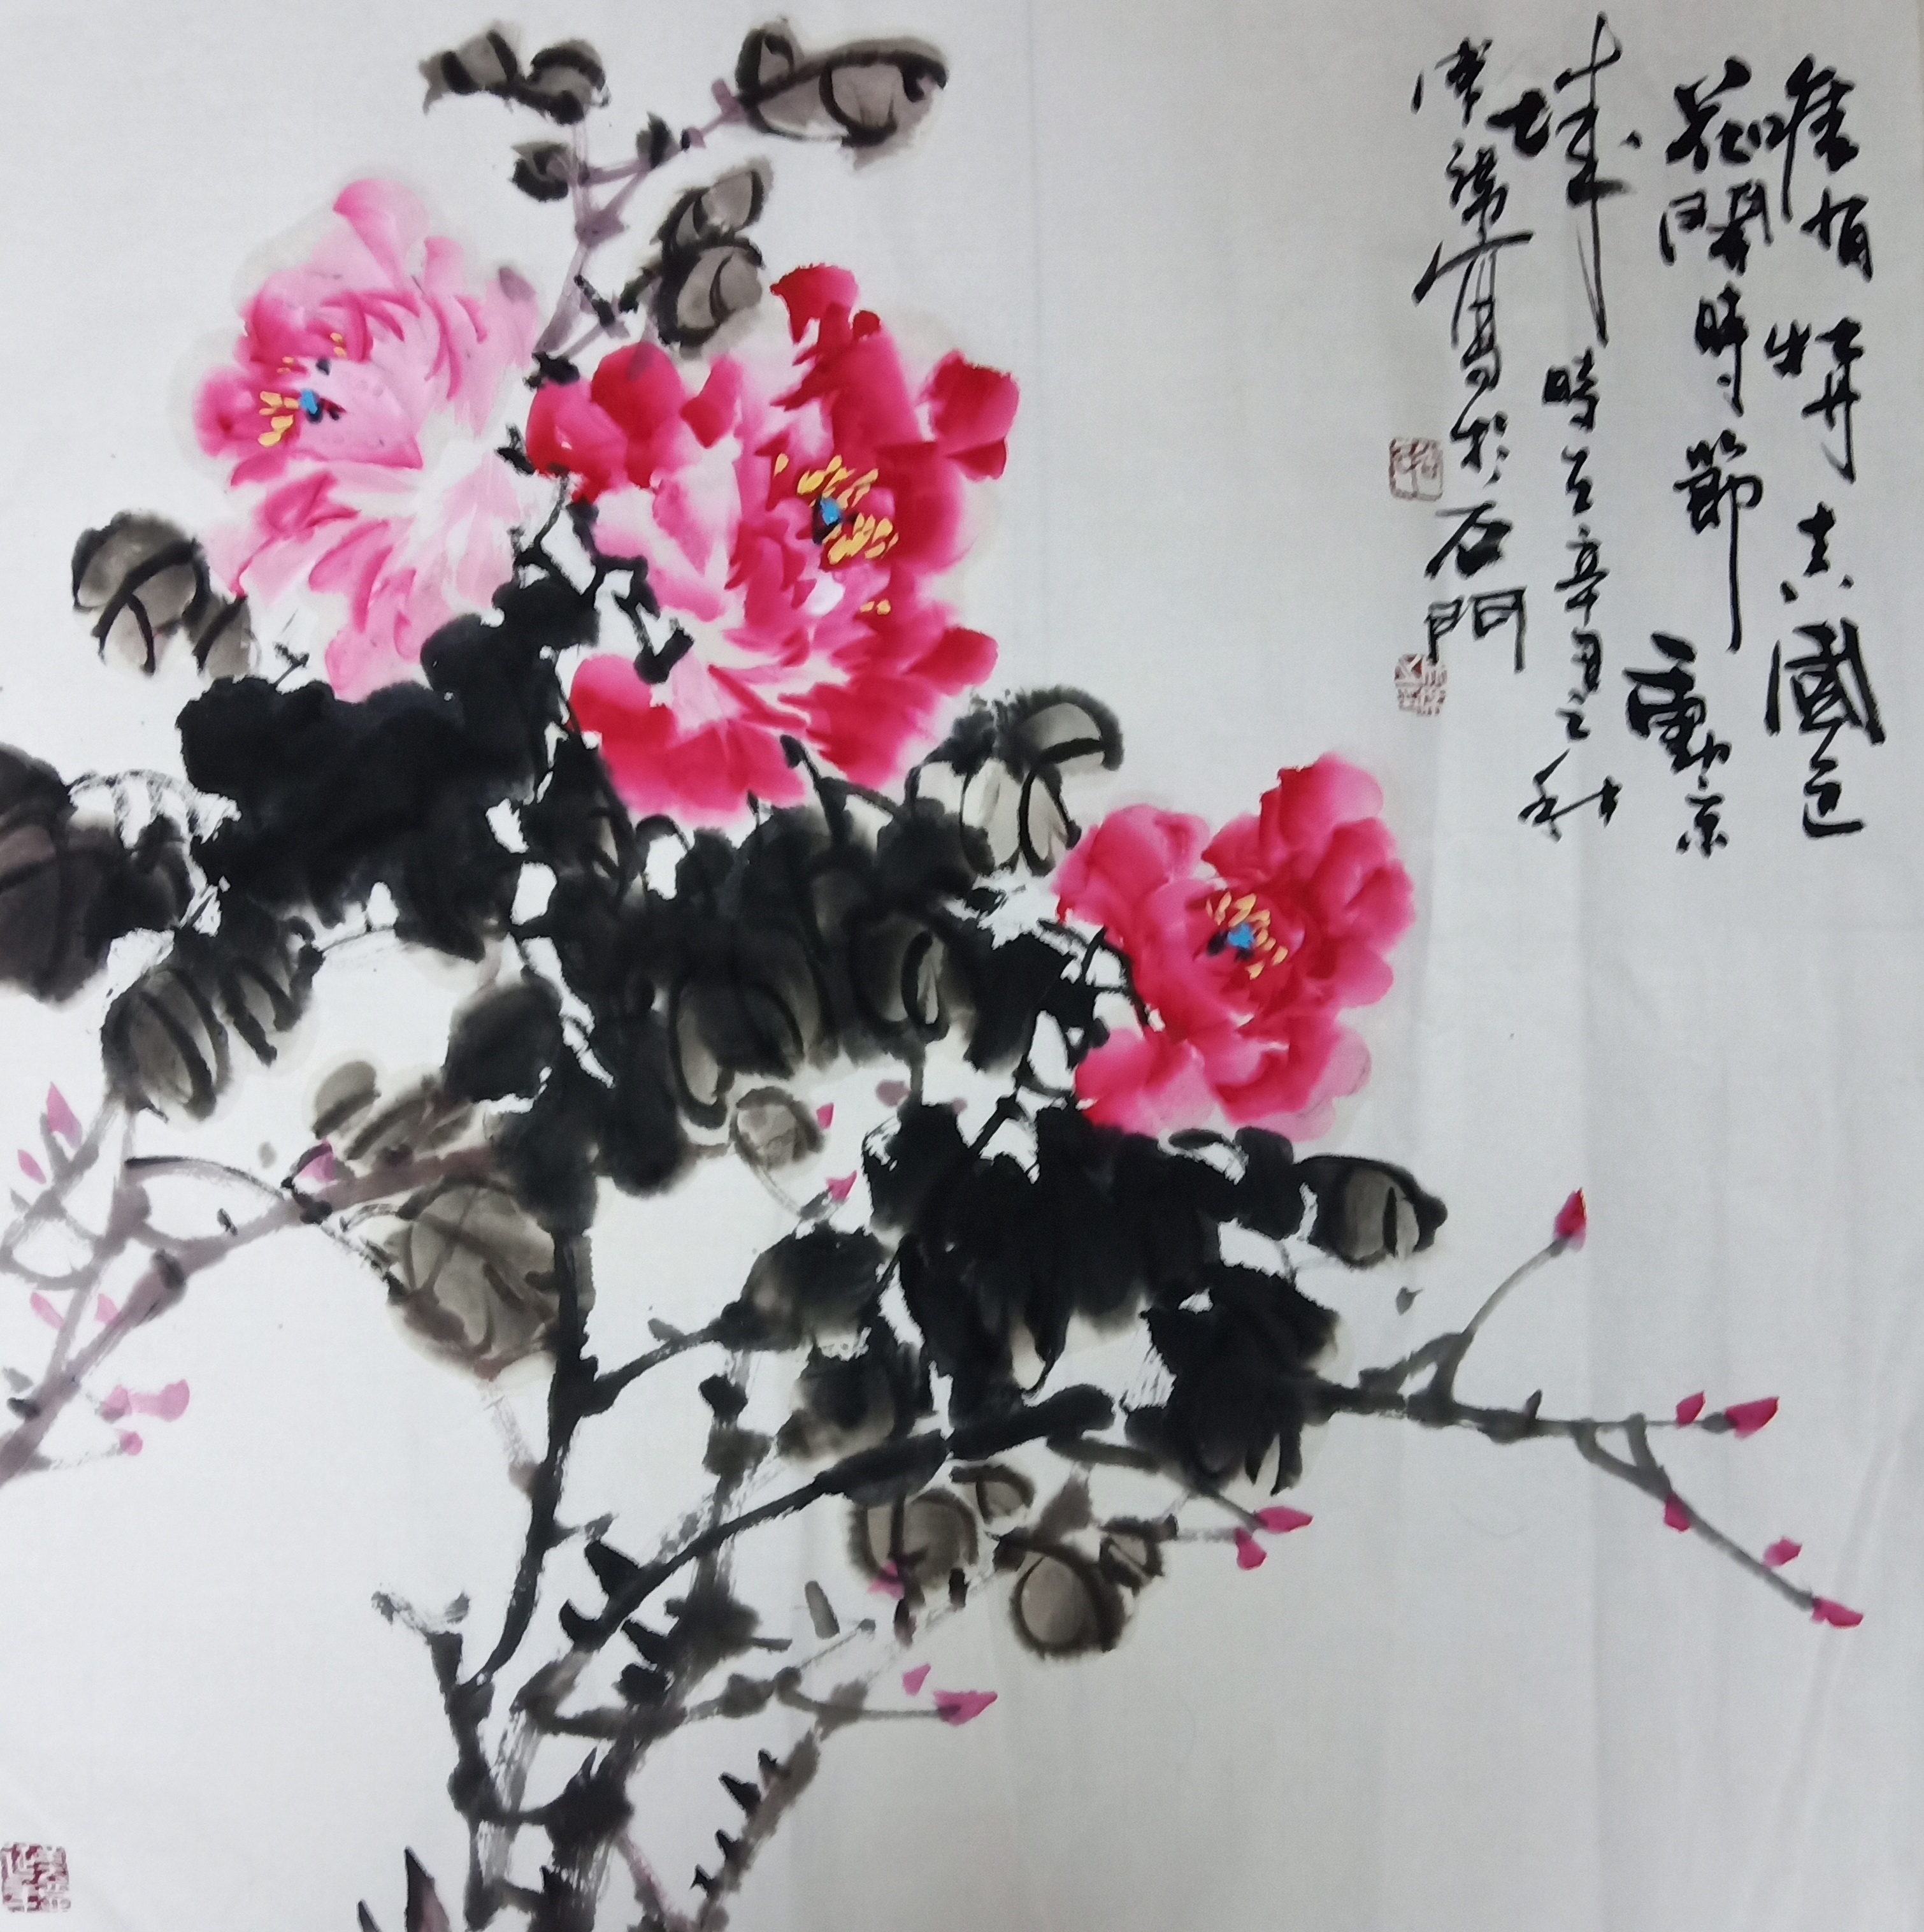 唯有牡丹真國色
花開時節動京
城 時在辛丑之秋
寫於石門